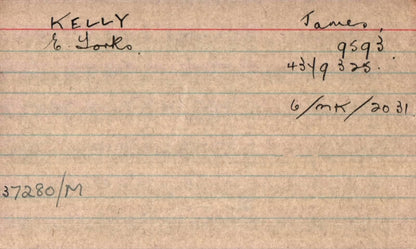 KELLY James,
E. Yorks. 9593
43419325.
6/MK/2031.
37280/M